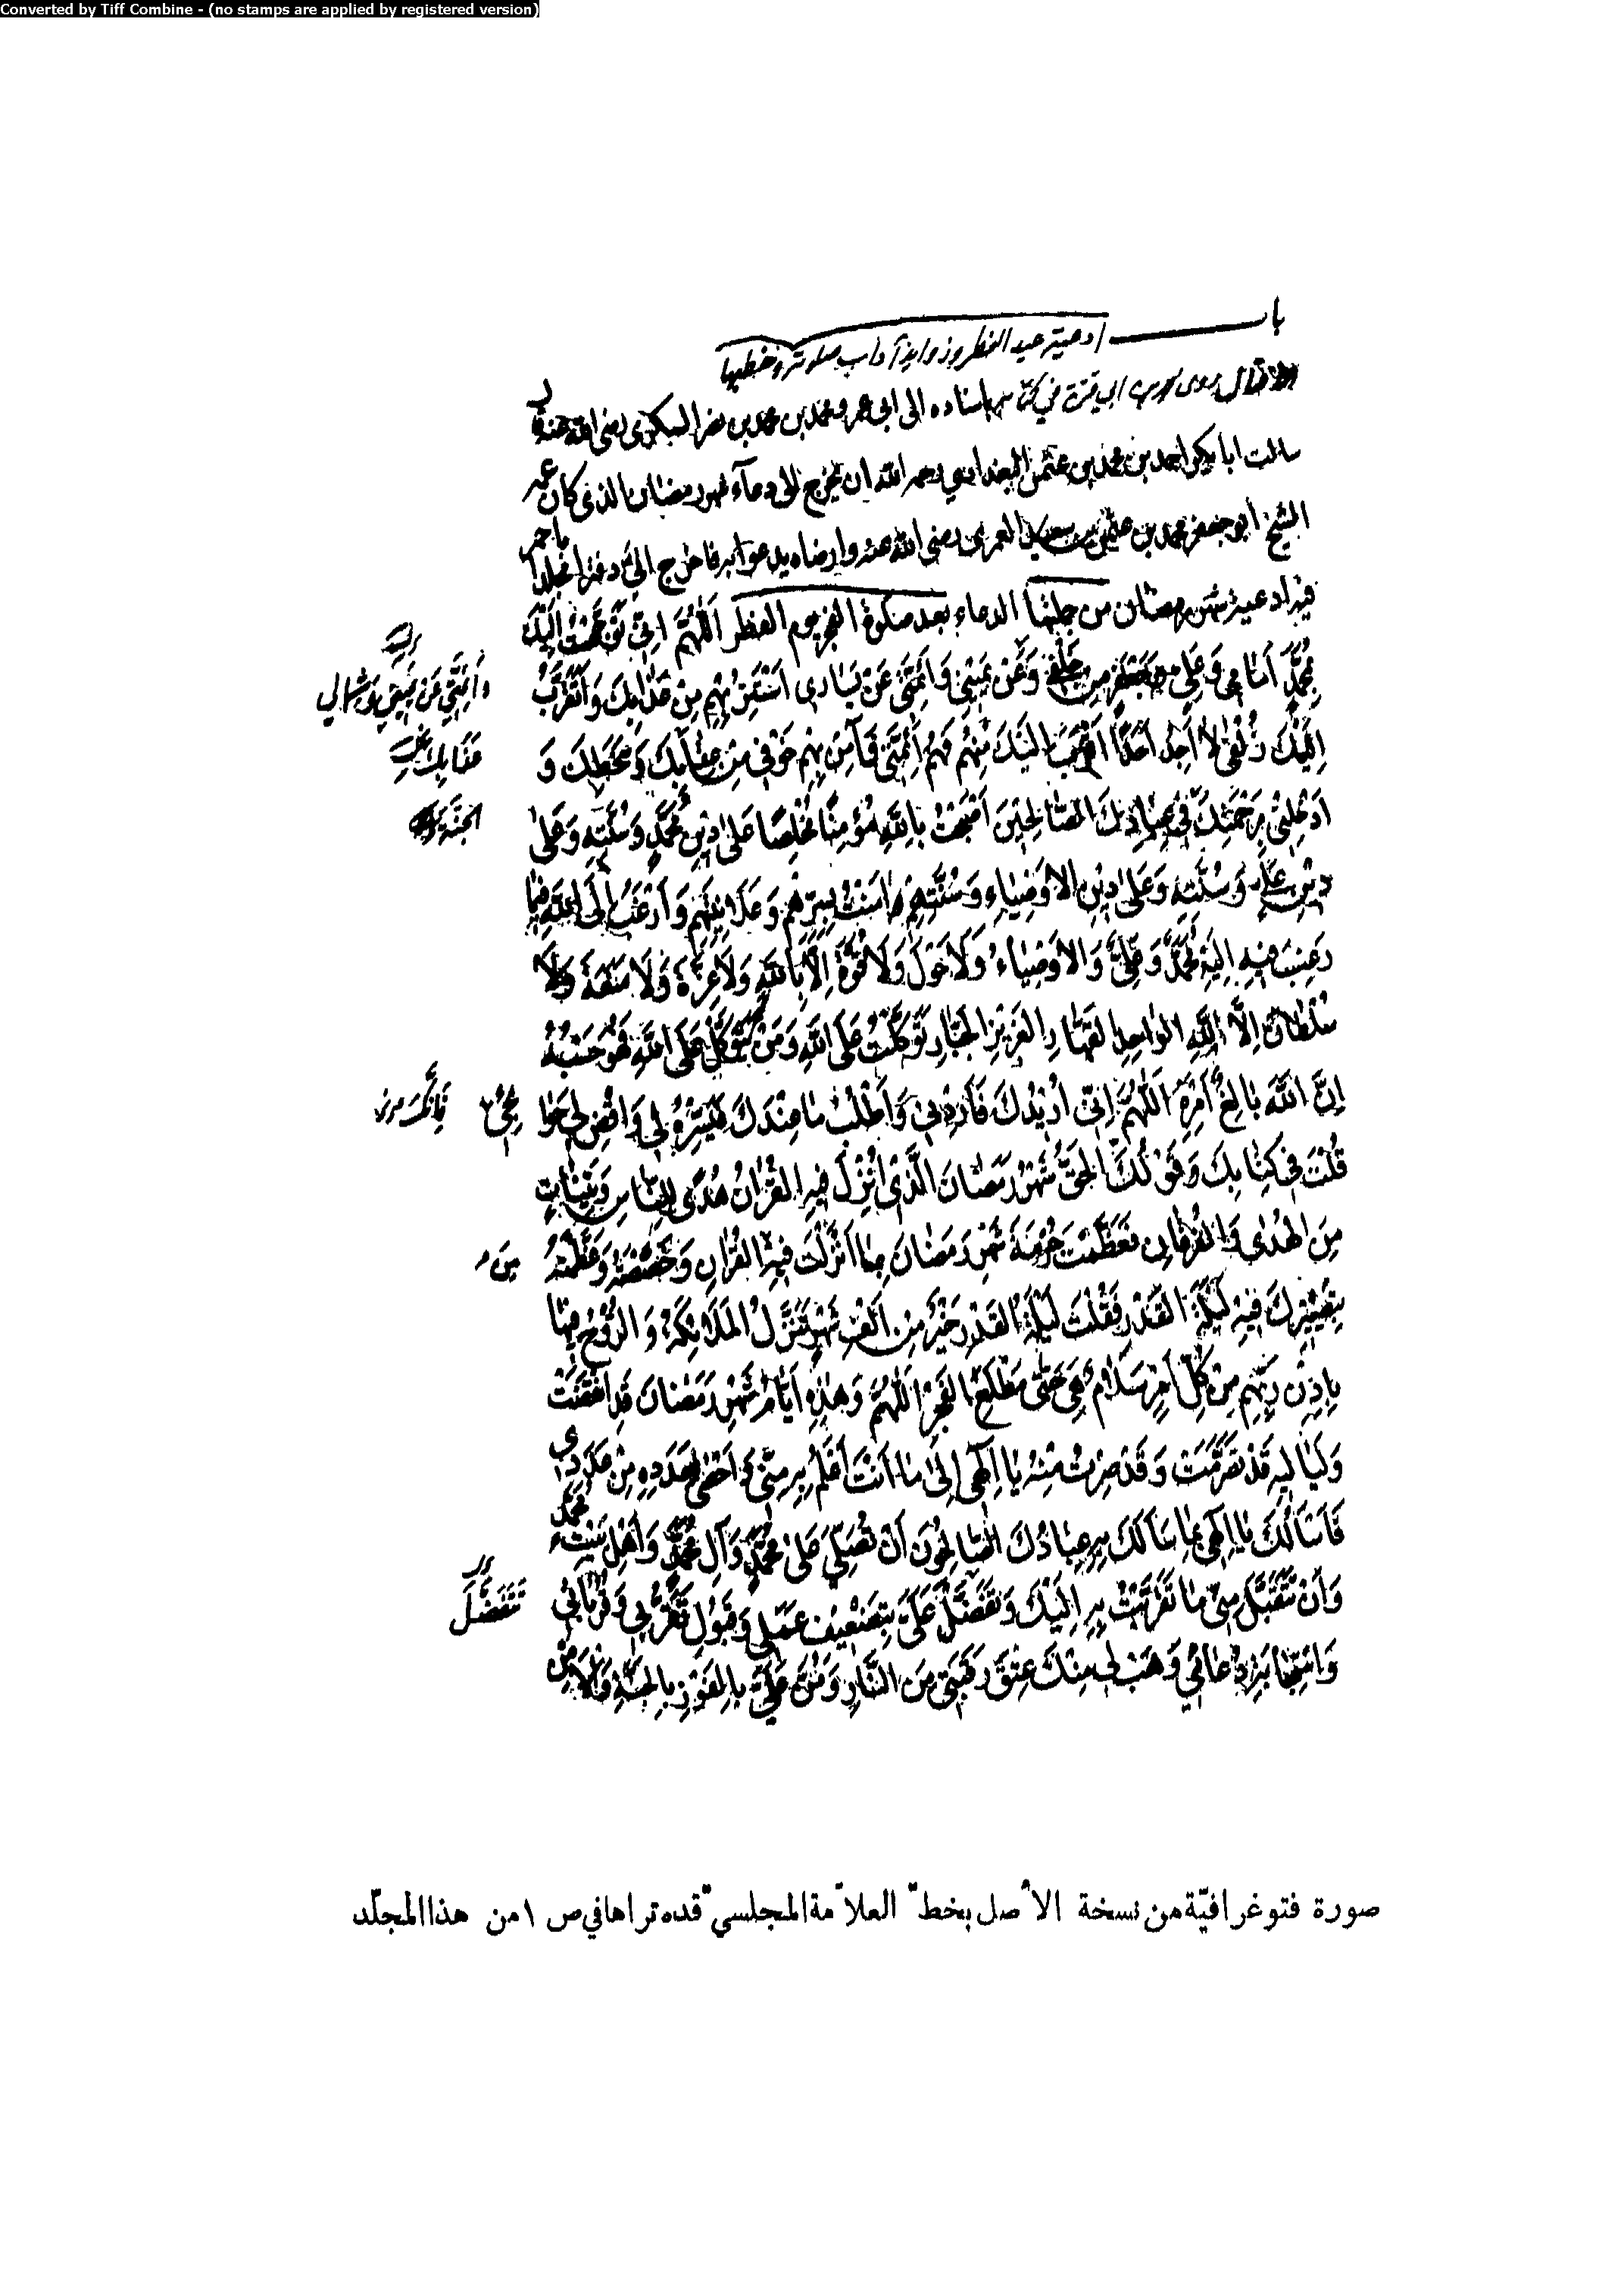 Converted by Tiff Combine - (no stamps are applied by registered version)
باب
ادعية عيد الفطر وزوائد آداب صلوته وخطبها
الاقبال روى ابي قرة في كتابه باسناده الى ابي عمرو محمد بن محمد بن نصر السكوني رضي الله عنه قال
سالت ابا بكر احمد بن محمد بن عثمن البغدادي رحمه الله ان يخرج الي دعاء شهر رمضان الذي كان عمه
الشيخ ابو جعفر محمد بن عثمن بن سعيد العمري رضي الله عنه وارضاه يدعو به فاخرج الي دفترا مجلدا باحمر
فيه ادعية شهر رمضان من جملتها الدعاء بعد صلوة الفجر يوم الفطر اَللّهُمَّ اِنّي تَوَجَّهْتُ اِلَيْكَ
بِمُحَمَّدٍ اَمَامي وَعَلِيٍّ مِنْ خَلْفي وَعَنْ يَميني وَاَئِمَّتي عَنْ يَسَاري اَسْتَتِرُ بِهِمْ مِنْ عَذَابِكَ وَاَتَقَرَّبُ
وَاَئِمَّتي عَنْ يَميني وَشِمالي
اِلَيْكَ زُلْفى لا اَجِدُ اَحَدًا اَقْرَبَ اِلَيْكَ مِنْهُمْ فَهُمْ اَئِمَّتي فَآمِنْ بِهِمْ خَوْفي مِنْ عِقَابِكَ وَسَخَطِكَ وَ
عَذَابِكَ
اَدْخِلْني بِرَحْمَتِكَ في عِبَادِكَ الصّالِحينَ اَصْبَحْتُ بِاللهِ مُؤْمِنًا مُخْلِصًا عَلى دينِ مُحَمَّدٍ وَسُنَّتِهِ وَعَلى
الجَنَّةَ
دينِ عَلِيٍّ وَسُنَّتِهِ وَعَلى دينِ الاَوْصِياءِ وَسُنَّتِهِمْ امَنْتُ بِسِرِّهِمْ وَعَلانِيَتِهِمْ وَاَرْغَبُ اِلَى اللهِ فيما
رَغِبَ فيهِ اِلَيْهِ مُحَمَّدٌ وَعَلِيٌّ وَالاَوْصِياءُ وَلا حَوْلَ وَلا قُوَّةَ اِلّا بِاللهِ وَلا عِزَّةَ وَلا مَنَعَةَ وَلا
سُلْطانَ اِلّا اللهِ الواحِدِ القَهّارِ العَزيزِ الجَبّارِ تَوَكَّلْتُ عَلَى اللهِ وَمَنْ يَتَوَكَّلْ عَلَى اللهِ فَهُوَ حَسْبُهُ
اِنَّ اللهَ بالِغُ اَمْرِهِ اَللّهُمَّ اِنّي اُريدُكَ فَاَرِدْني وَاَطْلُبُ ما عِنْدَكَ فَيَسِّرْهُ لي وَاقْضِ لي حَوائِجي
فَاِنَّكَ
قُلْتَ في كِتابِكَ وَقَوْلُكَ الحَقُّ شَهْرُ رَمَضانَ الَّذي اُنْزِلَ فيهِ القُرْانُ هُدًى لِلنّاسِ وَبَيِّناتٍ
مِنَ الهُدى وَالفُرْقانِ فَعَظَّمْتَ حُرْمَةَ شَهْرِ رَمَضانَ بِما اَنْزَلْتَ فيهِ القُرْانِ وَخَصَصْتَهُ وَعَظَّمْتَهُ
مِنَ
بِتَصْييرِكَ فيهِ لَيْلَةَ القَدْرِ فَقُلْتَ لَيْلَةُ القَدْرِ خَيْرٌ مِنْ اَلْفِ شَهْرٍ تَنَزَّلُ المَلائِكَةُ وَالرُّوحُ فيها
بِاِذْنِ رَبِّهِمْ مِنْ كُلِّ اَمْرٍ سَلامٌ هِيَ حَتّى مَطْلَعِ الفَجْرِ اَللّهُمَّ وَهذِهِ اَيّامُ شَهْرِ رَمَضانَ قَدِ انْقَضَتْ
وَلَياليهِ قَدْ تَصَرَّمَتْ وَقَدْ صِرْتُ مِنْهُ يا اِلهي اِلى ما اَنْتَ اَعْلَمُ بِهِ مِنّي وَاَحْصى لِعَدَدِهِ مِنْ عَدَدي
فَاَسْاَلُكَ يا اِلهي بِما سَاَلَكَ بِهِ عِبادُكَ الصّالِحُونَ اَنْ تُصَلِّيَ عَلى مُحَمَّدٍ وَآلِ مُحَمَّدٍ وَاَهْلِ بَيْتِ مُحَمَّدٍ
وَاَنْ تَتَقَبَّلَ مِنّي ما تَقَرَّبْتُ بِهِ اِلَيْكَ وَتَفَضَّلَ عَلَيَّ بِتَضْعيفِ عَمَلي وَقَبُولِ تَقَرُّبي وَقُرُباتي
تَتَفَضَّلَ
وَاسْتِجابَةِ دُعائي وَهَبْ لي مِنْكَ عِتْقَ رَقَبَتي مِنَ النّارِ وَمُنَّ عَلَيَّ بِالفَوْزِ بِالجَنَّةِ وَالاَمْنِ
صورة فتوغرافيّة من نسخة الأصل بخطّ العلاّمة المجلسيّ قده تراها في ص ١ من هذا المجلّد